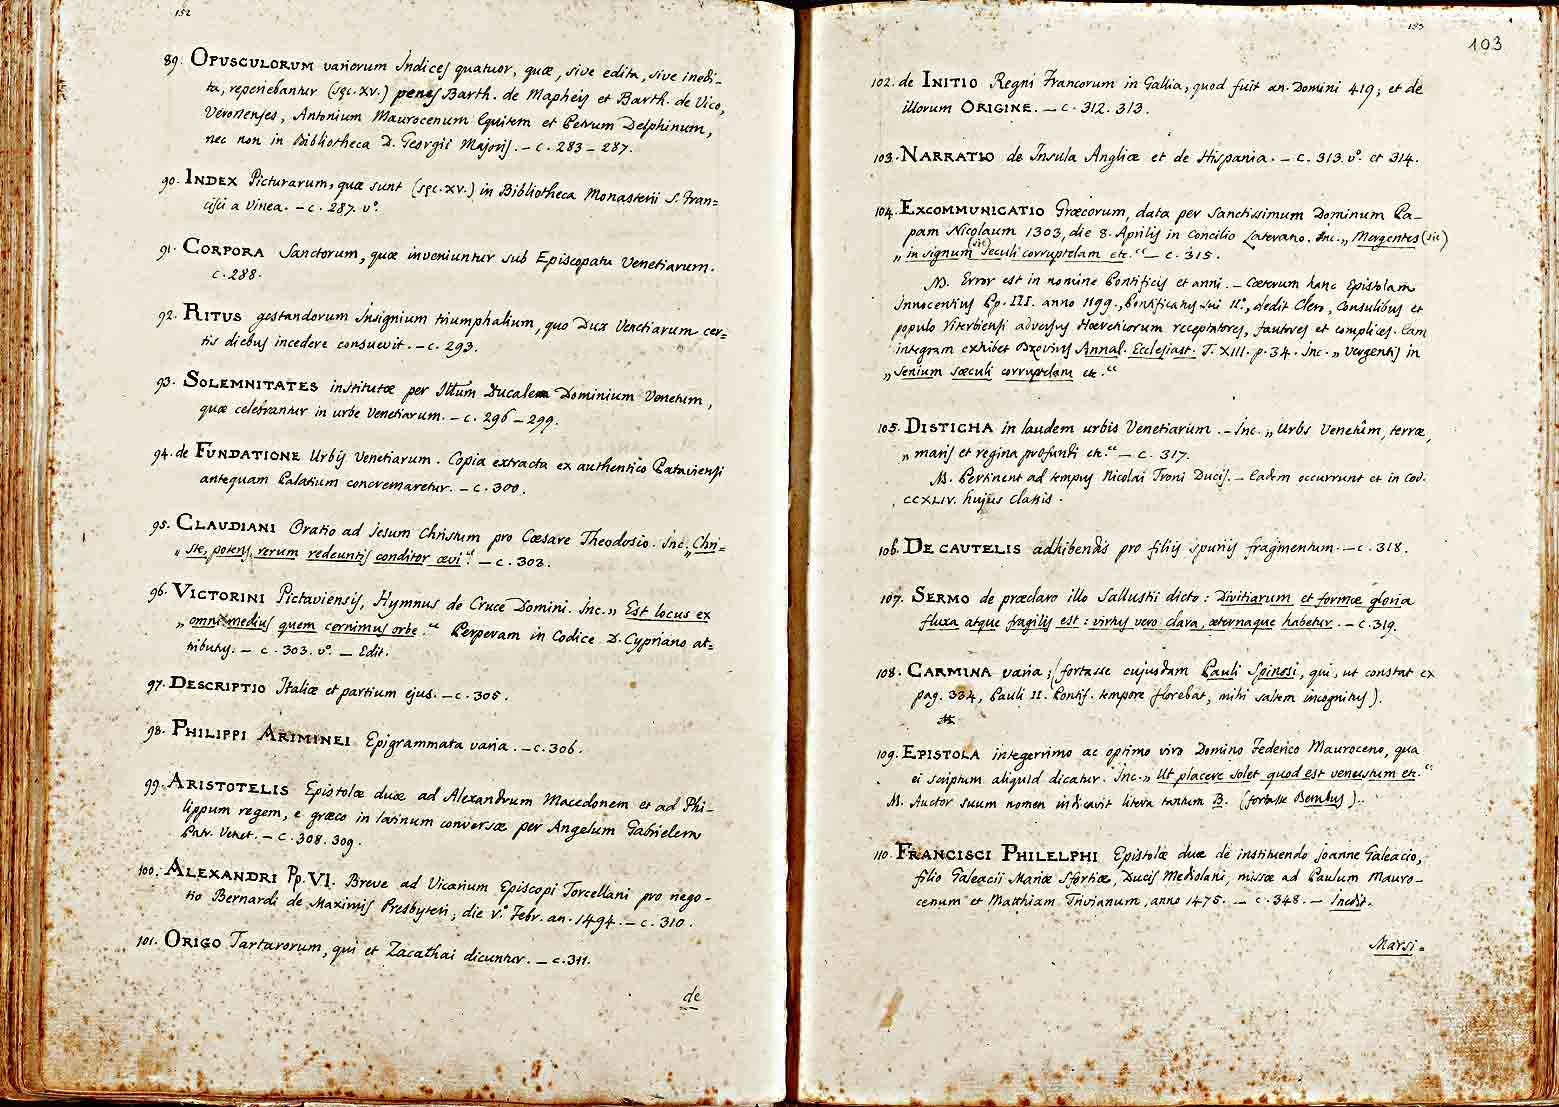 152
89. OPUSCULORUM variorum Indices quatuor, quæ, sive edita, sive inedi-
ta, reperiebantur (sęc. XV.) penes Barth. de Mapheis et Barth. de Vico,
Veronenses, Antonium Maurocenum Equitem et Petrum Delphinum,
nec non in Bibliotheca D. Georgii Majoris. – c. 283 – 287.
90. INDEX Picturarum, quæ sunt (sęc. XV.) in Bibliotheca Monasterii S. Fran=
cisci a Vinea. – c. 287. vº.
91. CORPORA Sanctorum, quæ inveniuntur sub Episcopatu Venetiarum.
c. 288.
92. RITUS gestandorum Insignium triumphalium, quo Dux Venetiarum cer=
tis diebus incedere consuevit. – c. 293.
93. SOLEMNITATES institutæ per Illum Ducalem Dominium Venetum,
quæ celebrantur in urbe Venetiarum. – c. 296 – 299.
94. de FUNDATIONE Urbis Venetiarum. Copia extracta ex authentico Pataviensi
antequam Palatium concremaretur. – c. 300.
95. CLAUDIANI Oratio ad Jesum Christum pro Cæsare Theodosio. Inc. „Chri=
„ste, potens rerum redeuntis conditor ævi“. – c. 303.
96. VICTORINI Pictaviensis, Hymnus de Cruce Domini. Inc. „Est locus ex
„omni medius quem cernimus orbe.“ Perperam in Codice D. Cypriano at=
tributus. – c. 303. vº. – Edit.
97. DESCRIPTIO Italiæ et partium ejus. – c. 305.
98. PHILIPPI ARIMINEI Epigrammata varia. – c. 306.
99. ARISTOTELIS Epistolæ duæ ad Alexandrum Macedonem et ad Phi-
lippum regem, e græco in latinum conversæ per Angelum Gabrielem
Patr. Venet. – c. 308. 309.
100. ALEXANDRI Pp. VI. Breve ad Vicarium Episcopi Torcellani pro nego-
tio Bernardi de Maximis Presbyteri, die v.ª Febr. an. 1494. – c. 310.
101. ORIGO Tartarorum, qui et Zacathai dicuntur. – c. 311.
de
153
103
102. de INITIO Regni Francorum in Gallia, quod fuit an. Domini 419; et de
illorum ORIGINE. – c. 312. 313.
103. NARRATIO de Insula Angliæ et de Hispania. – c. 313. vº. et 314.
104. EXCOMMUNICATIO Græcorum, data per Sanctissimum Dominum Pa-
pam Nicolaum 1303, die 8. Aprilis in Concilio Laterano. Inc. „Mergentes (sic)
„in signum (sic) seculi corruptelam etc.“ – c. 315.
M. Error est in nomine Pontificis et anni. – Cæterum hanc Epistolam
Innocentius Pp. III. anno 1199., Pontificatus sui II.º, dedit Clero, Consulibus et
populo Viterbiensi adversus Hæreticorum receptatores, fautores et complices. Eam
integram exhibet Bzovius Annal. Ecclesiast. T. XIII. p. 34. Inc. „Vergentis in
„senium sæculi corruptelam etc.“
105. DISTICHA in laudem urbis Venetiarum. – Inc. „Urbs Venetûm, terræ,
„maris et regina profundi etc.“ – c. 317.
M. Pertinent ad tempus Nicolai Troni Ducis. – Eadem occurrunt et in Cod.
CCXLIV. hujus classis.
106. DE CAUTELIS adhibendis pro filiis spuriis fragmentum. – c. 318.
107. SERMO de præclaro illo Sallustii dicto: Divitiarum et formæ gloria
fluxa atque fragilis est: virtus vero clara, æternaque habetur. – c. 319.
108. CARMINA varia; (fortasse cujusdam Pauli Spinosi, qui, ut constat ex
pag. 334, Pauli II. Pontif. tempore florebat, mihi saltem incognitus).
M.
109. EPISTOLA integerrimo ac optimo viro Domino Federico Mauroceno, qua
ei scriptum aliquid dicatur. Inc. „Ut placere solet quod est venustum etc.“
M. Auctor suum nomen indicavit litera tantum B. (fortasse Bembus)..
110. FRANCISCI PHILELPHI Epistolæ duæ de instituendo Joanne Galeacio,
filio Galeacii Mariæ Sfortiæ, Ducis Mediolani, missæ ad Paulum Mauro-
cenum et Matthiam Trivianum, anno 1475. – c. 348. – Inedit.
Marsi=